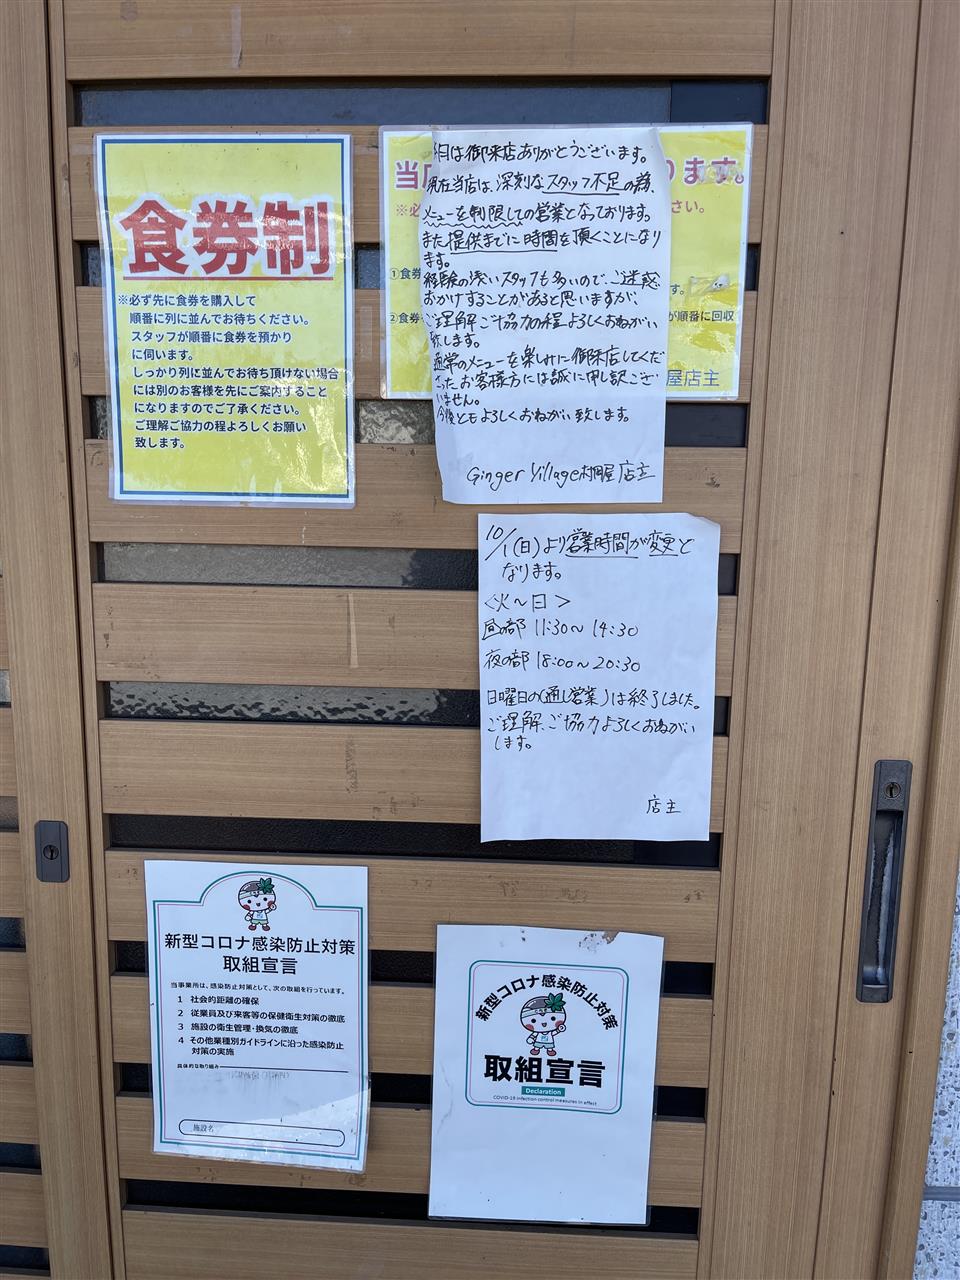 食券制
※必ず先に食券を購入して
順番に列に並んでお待ちください。
スタッフが順番に食券を預かり
に伺います。
しっかり列に並んでお待ち頂けない場合
には別のお客様を先にご案内すること
になりますのでご了承ください。
ご理解ご協力の程よろしくお願い
致します。
当
ります。
※必
さい。
①食券
す。
②食券
が順番に回収
屋店主
本日は御来店ありがとうございます。
現在当店は、深刻なスタッフ不足の為、
メニューを制限しての営業となっております。
また提供までに時間を頂くことになり
ます。
経験の浅いスタッフも多いので、ご迷惑
おかけすることがあると思いますが、
ご理解ご協力の程よろしくおねがい
致します。
通常のメニューを楽しみに御来店してくだ
さったお客様方には誠に申し訳ござ
いません。
今後ともよろしくおねがい致します。
Ginger Village村岡屋 店主
10/1(日)より営業時間が変更と
なります。
<火〜日>
昼の部 11:30〜14:30
夜の部 18:00〜20:30
日曜日の(通し営業)は終了しました。
ご理解、ご協力よろしくおねがい
します。
店主
新型コロナ感染防止対策
取組宣言
当事業所は、感染防止対策として、次の取組を行っています。
1 社会的距離の確保
2 従業員及び来客等の保健衛生対策の徹底
3 施設の衛生管理・換気の徹底
4 その他業種別ガイドラインに沿った感染防止
対策の実施
具体的な取り組み
施設名
新型コロナ感染防止対策
取組宣言
Declaration
COVID-19 infection control measures in effect